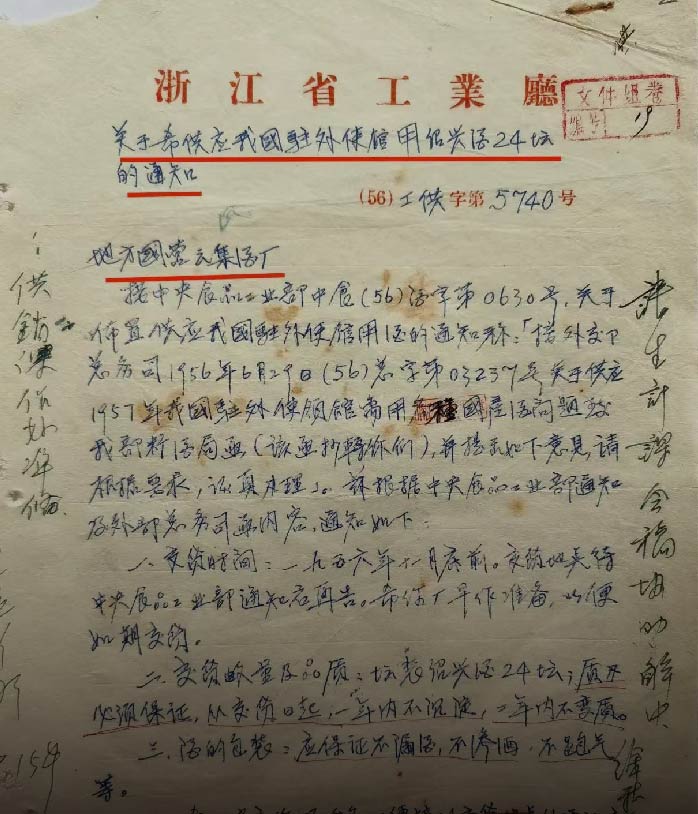 浙江省工業廳
文件组卷
19
关于希供应我國駐外使馆用绍兴酒24坛
的通知
(56)工供字第5740号
地方國营云集酒厂
接中央食品工业部中食(56)酒字第0630号,关于
佈置供应我國駐外使馆用酒的通知称:「接外交部
总务司1956年6月29日(56)总字第03237号关于供应
1957年我國駐外使领馆需用各種國產酒问题致
我部料酒局函(该函抄轉你们),并提出如下意见,请
根据要求,认真办理」。兹根据中央食品工业部通知
及外部总务司函内容,通知如下:
一、交货时间:一九五六年十一月底前。交货地点待
中央食品工业部通知后再告。希你厂早作准备,以便
如期交货。
二、交货数量及品质:坛装绍兴酒24坛;质量
必须保证,从交货日起,一年内不沉淀,二年内不变质。
三、酒的包装:应保证不漏酒,不渗酒,不跑气
等。
供銷课依如准备
請生计課会
154